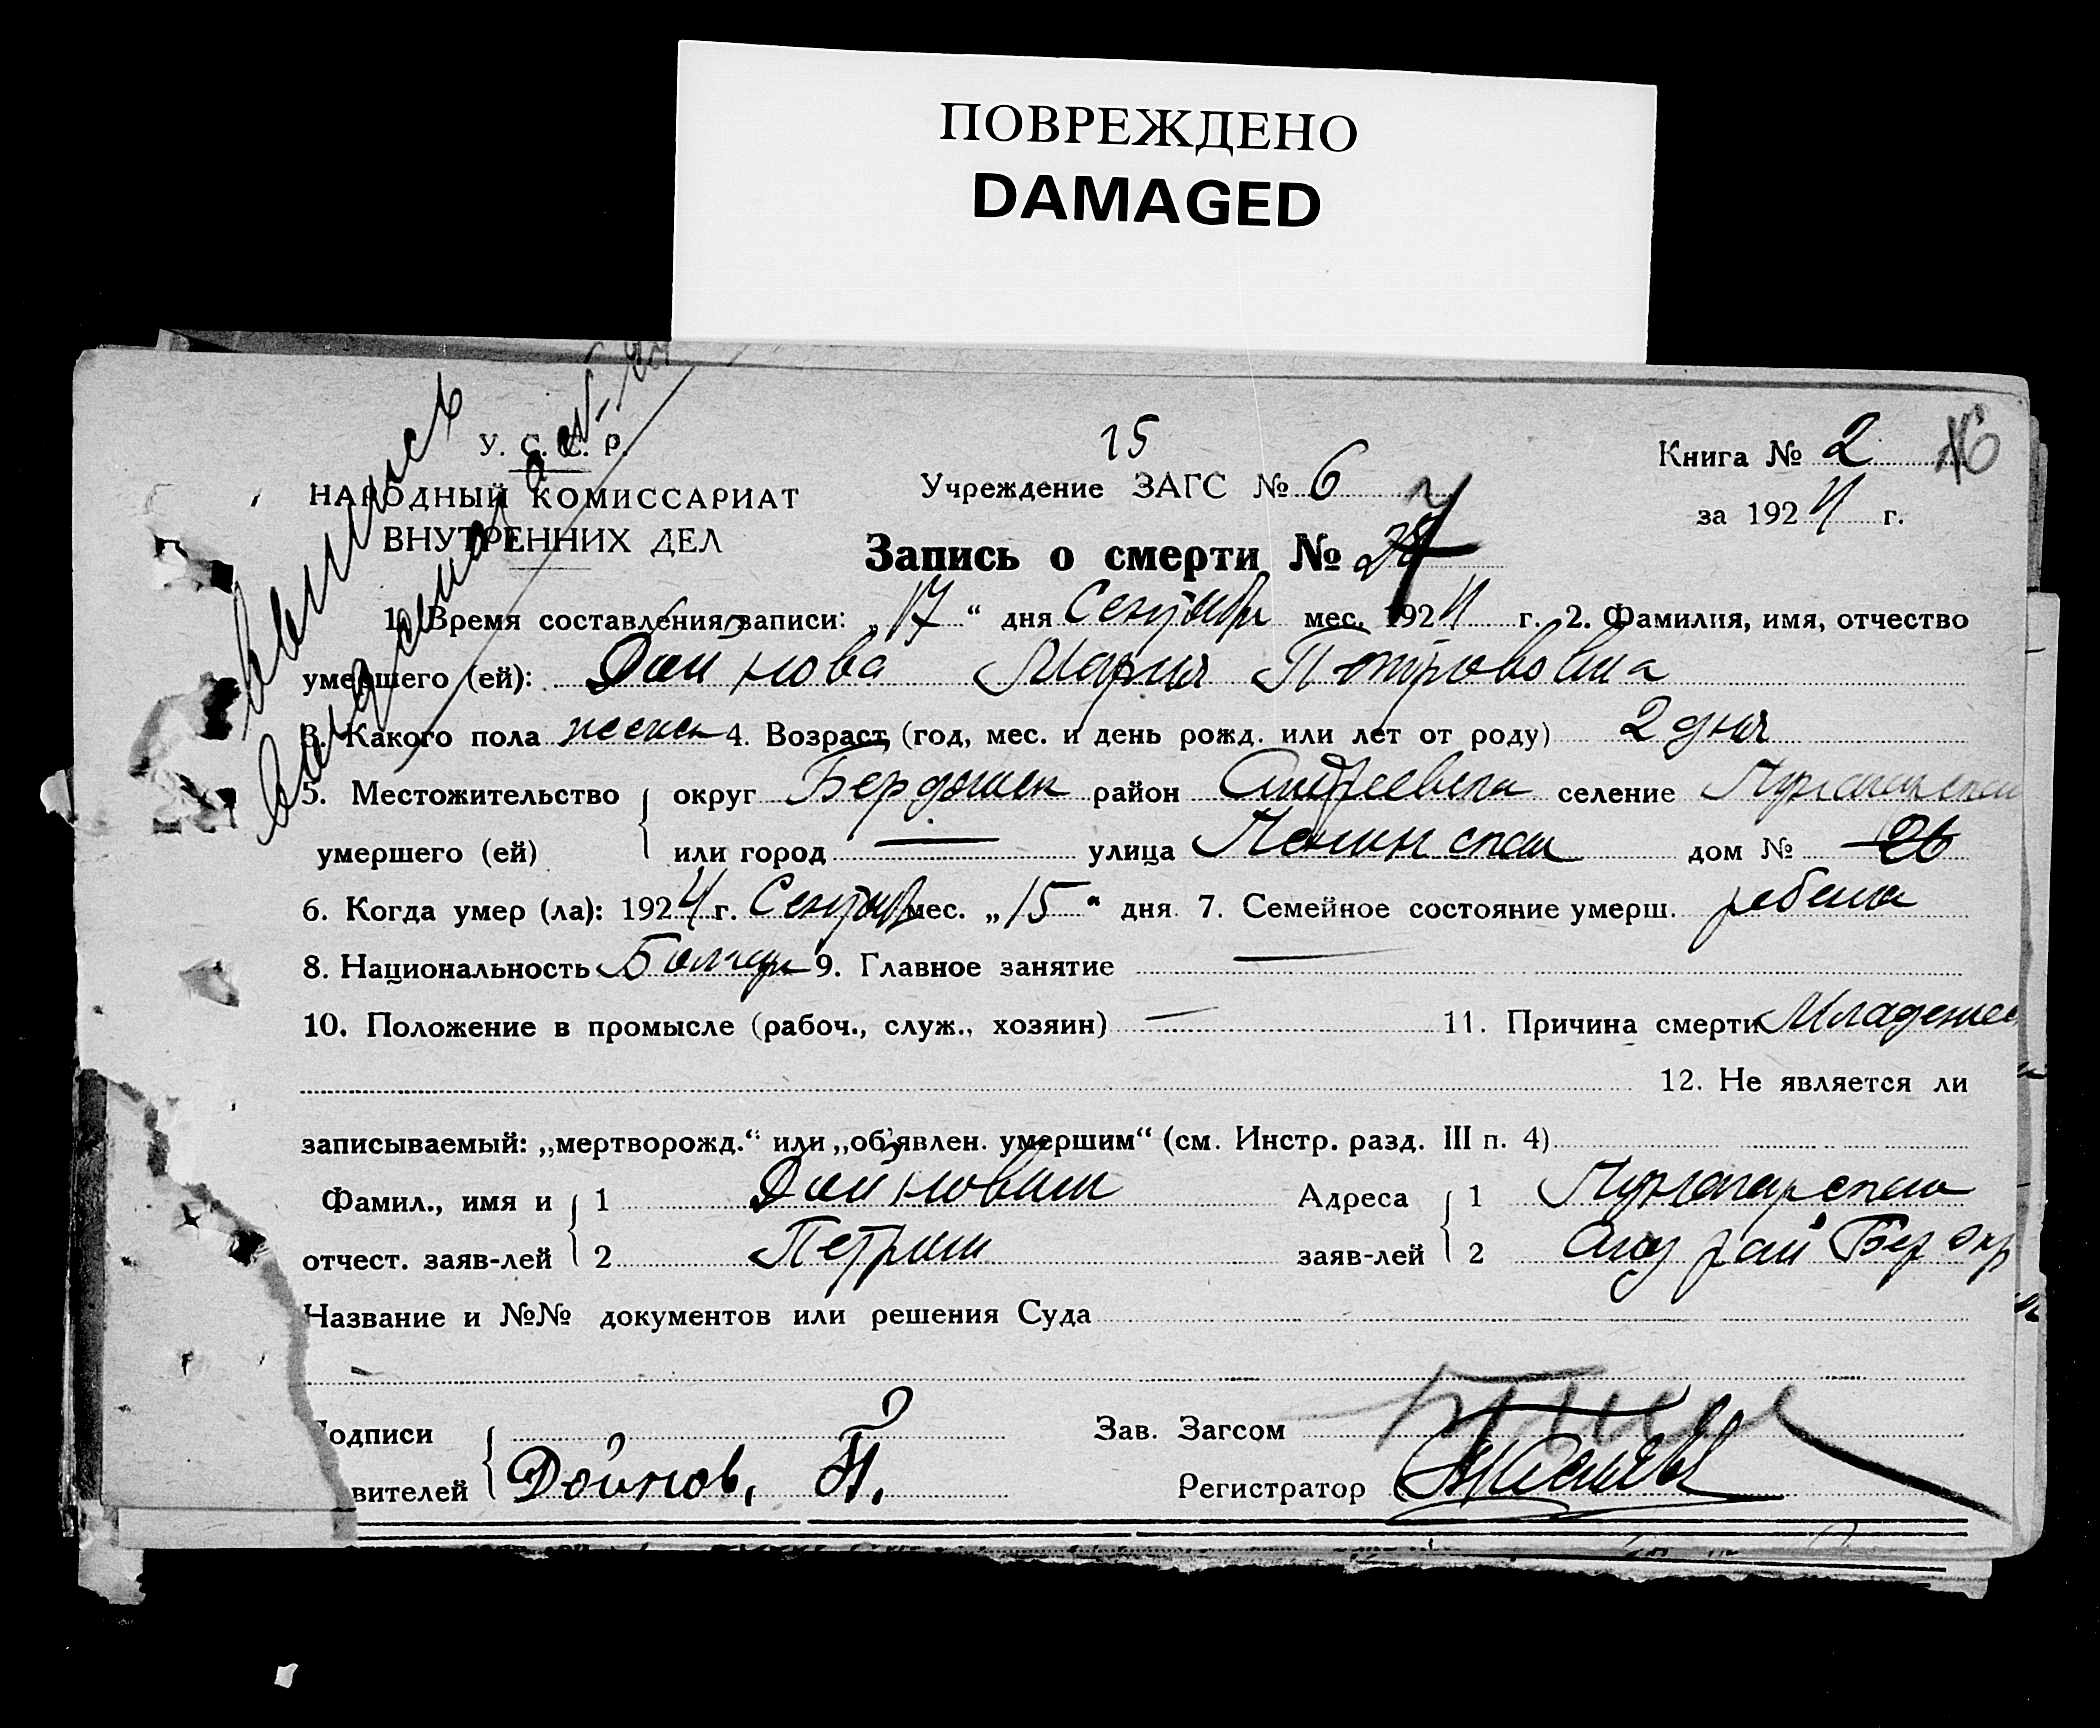 ПОВРЕЖДЕНО
DAMAGED
У. С. С. Р.
НАРОДНЫЙ КОМИССАРИАТ
ВНУТРЕННИХ ДЕЛ
15
Учреждение ЗАГС № 6
Запись о смерти №
Книга № 2
за 1924 г.
выпись
1. Время составления записи: „17“ дня Сентября мес. 1924 г. 2. Фамилия, имя, отчество
умершего (ей): Дойнова Мария Петровна
3. Какого пола женск 4. Возраст (год, мес. и день рожд. или лет от роду) 2 дня
5. Местожительство округ Бердянск район Андреевск селение
умершего (ей) или город — улица дом №
6. Когда умер (ла): 1924 г. Сентябр мес. „15“ дня 7. Семейное состояние умерш. ребенок
8. Национальность Болгар 9. Главное занятие —
10. Положение в промысле (рабоч., служ., хозяин) — 11. Причина смерти Младенческ
12. Не является ли
записываемый: „мертворожд.“ или „об'явлен. умершим“ (см. Инстр. разд. III п. 4)
Фамил., имя и 1 Дойновым Адреса 1
отчест. заяв-лей 2 Петром заяв-лей 2 Анд рай Бер окр
Название и №№ документов или решения Суда
Подписи Зав. Загсом
вителей Дойнов, П. Регистратор